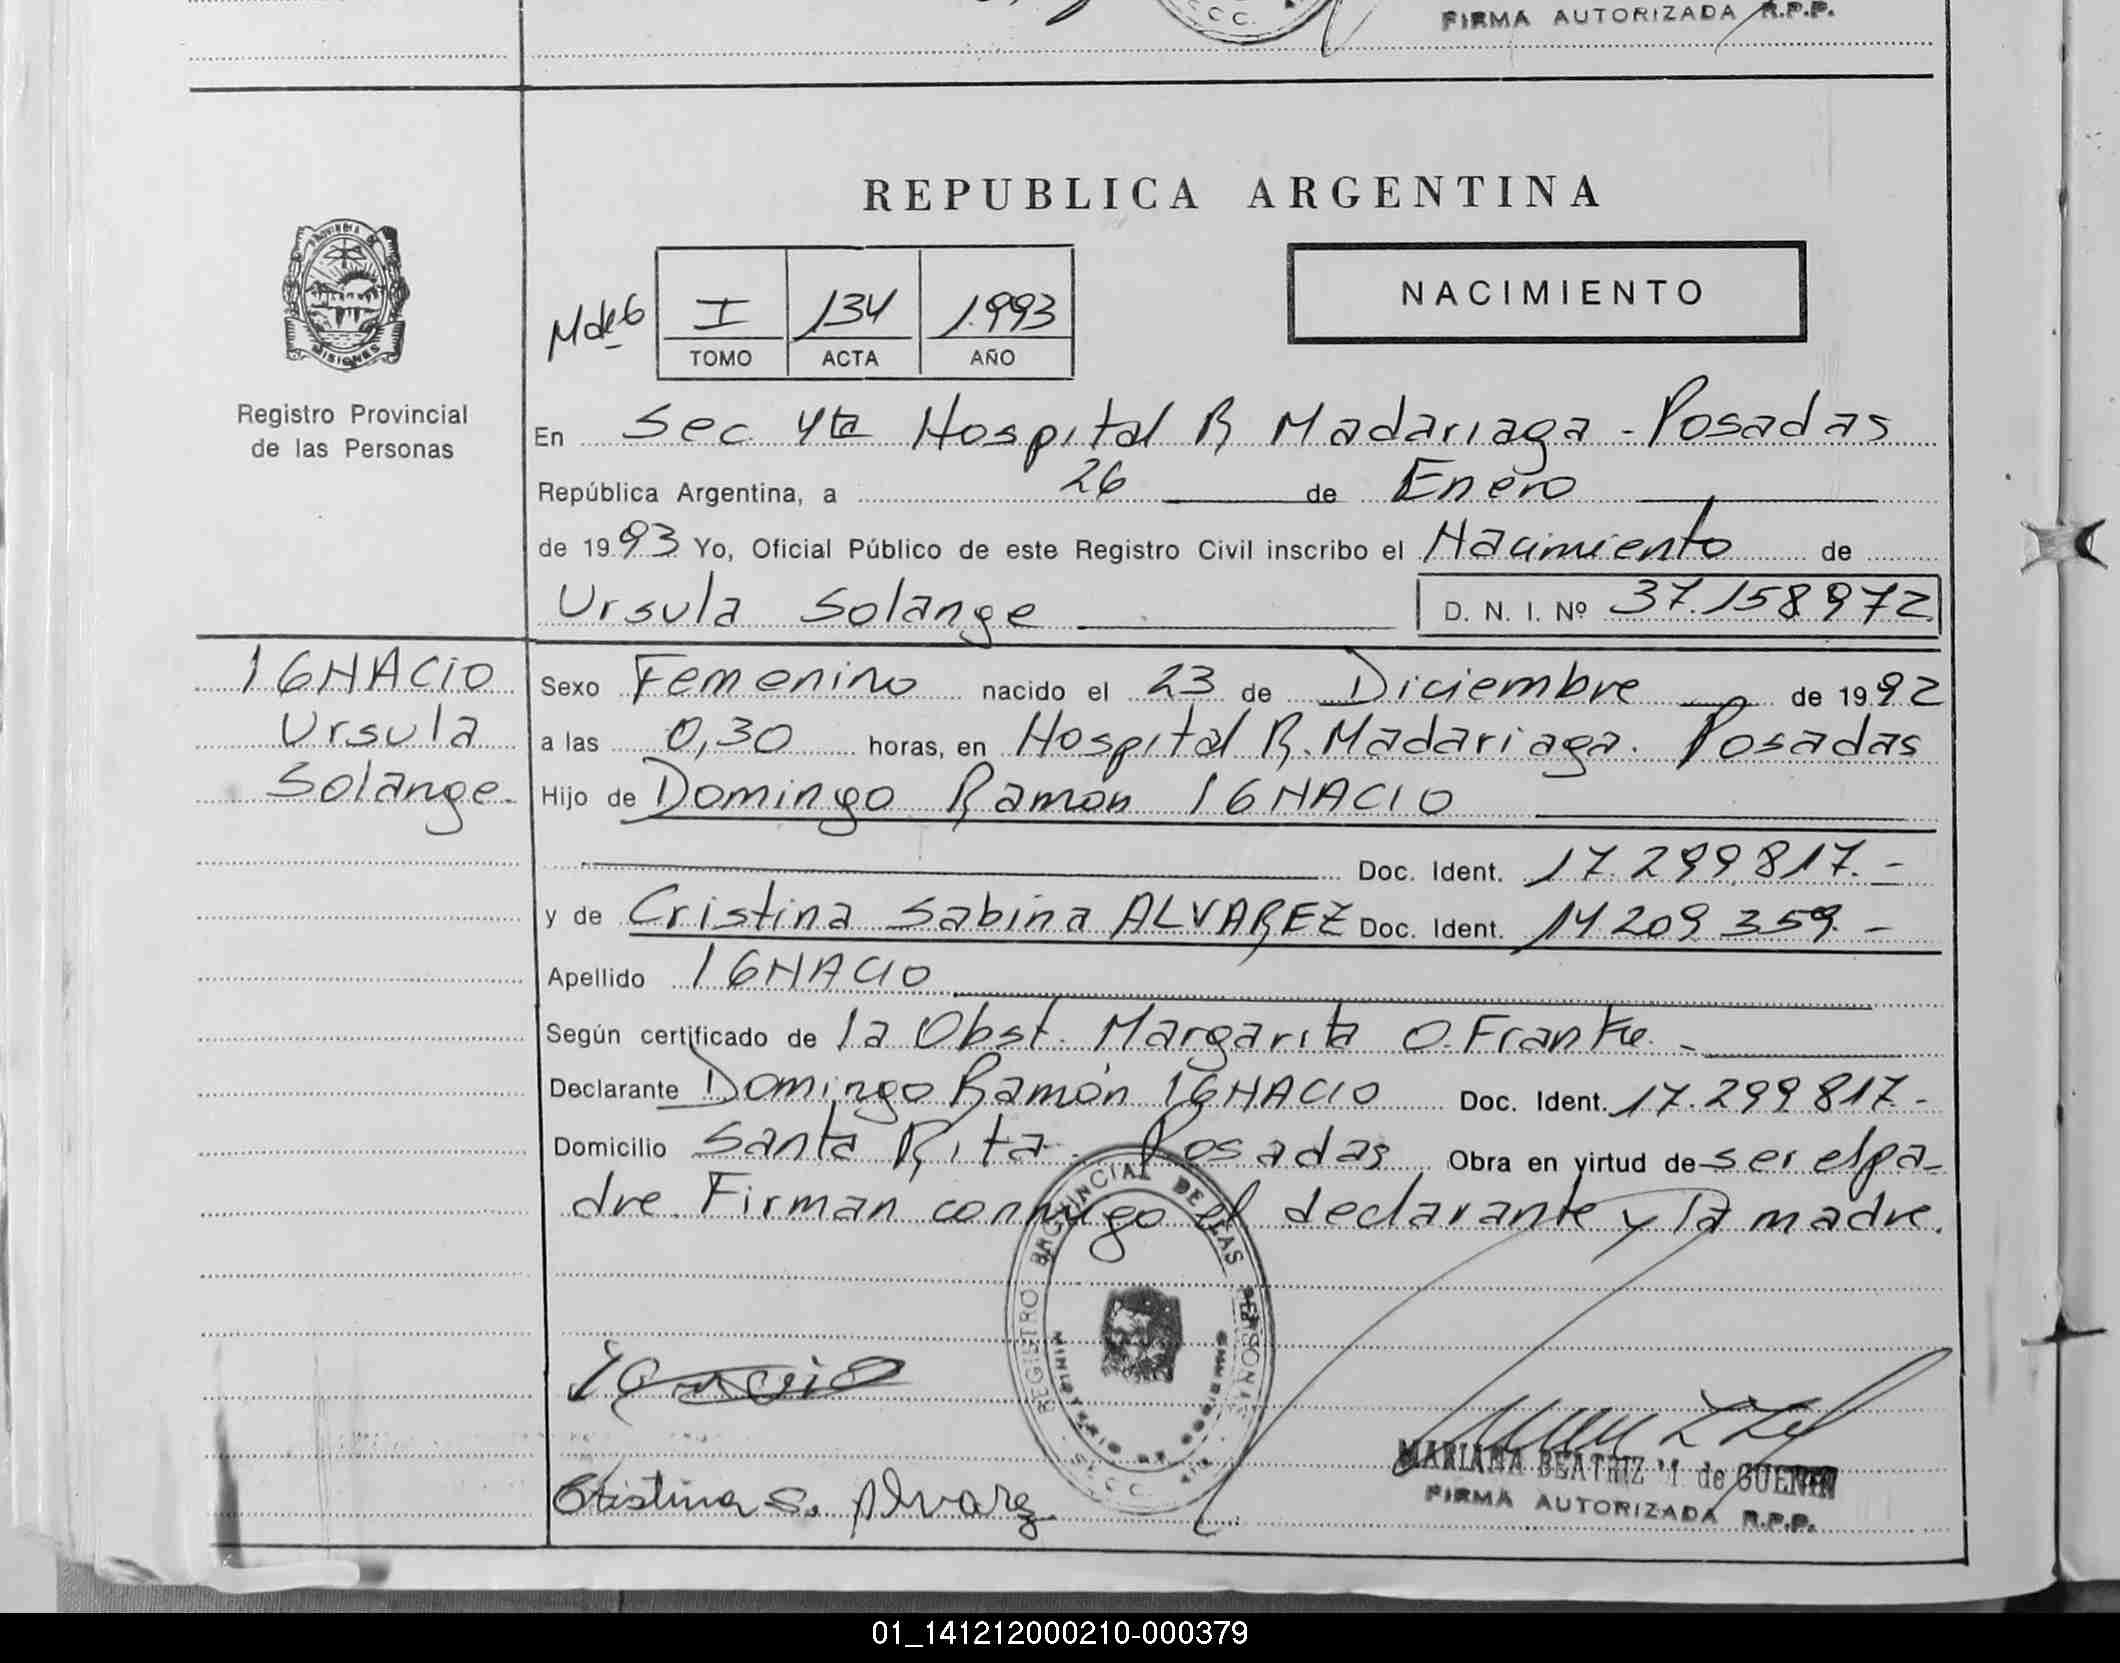 FIRMA AUTORIZADA R.P.P.
REPUBLICA ARGENTINA
NACIMIENTO
PROVINCIA DE
MISIONES
Registro Provincial
de las Personas
I 134 1.993
TOMO ACTA AÑO
En Sec 4ta Hospital R Madariaga - Posadas
República Argentina, a 26 de Enero
de 1993 Yo, Oficial Público de este Registro Civil inscribo el Nacimiento de
Ursula Solange D. N. I. Nº 37.158972
IGNACIO
Ursula
Solange.
Sexo Femenino nacido el 23 de Diciembre de 1992
a las 0,30 horas, en Hospital R. Madariaga. Posadas
Hijo de Domingo Ramón IGNACIO
Doc. Ident. 17.299.817.-
y de Cristina Sabina ALVAREZ Doc. Ident. 14.209.359.-
Apellido IGNACIO
Según certificado de la Obst. Margarita O. Franke.-
Declarante Domingo Ramón IGNACIO Doc. Ident. 17.299.817.-
Domicilio Santa Rita. Posadas Obra en virtud de ser el pa-
dre. Firman conmigo el declarante y la madre.
REGISTRO PROVINCIAL DE LAS PERSONAS
MINISTERIO DE GOBIERNO
Ignacio
Cristina S. Alvarez
MARIANA BEATRIZ de GUENIN
FIRMA AUTORIZADA R.P.P.
01_141212000210-000379